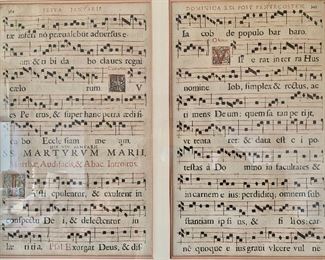 EXTRA JANUARII
tæ inferi nó prævalebūt adversus e-
am & ti bi da bo claues regni
cælo rum V
es Petrus, & super hanc petrā ædifi
ca bo Ecclesiam me am.
SS. MARTYRVM MARII,
Marthæ, Audifacis, & Abac. Introitus.
epulentur, & exultent in
conspectu De i, & delectentur in
læ titia. Psal. Exurgat Deus, & dis
DOMINICA XXI. POST PENTECOSTEN
Ia cob de populo bar baro.
Vir erat in terra Hus
nomine Iob, simplex & rectus, ac
timens Deum; quem Satan pe tijt,
ut tenta ret & data est ei po
testas à Domino in facultates &
in carnem e ius: perdiditq; omnem sub
stantiam ip si us, & fi li os: car
nē quoque e ius graui vlcere vul ne